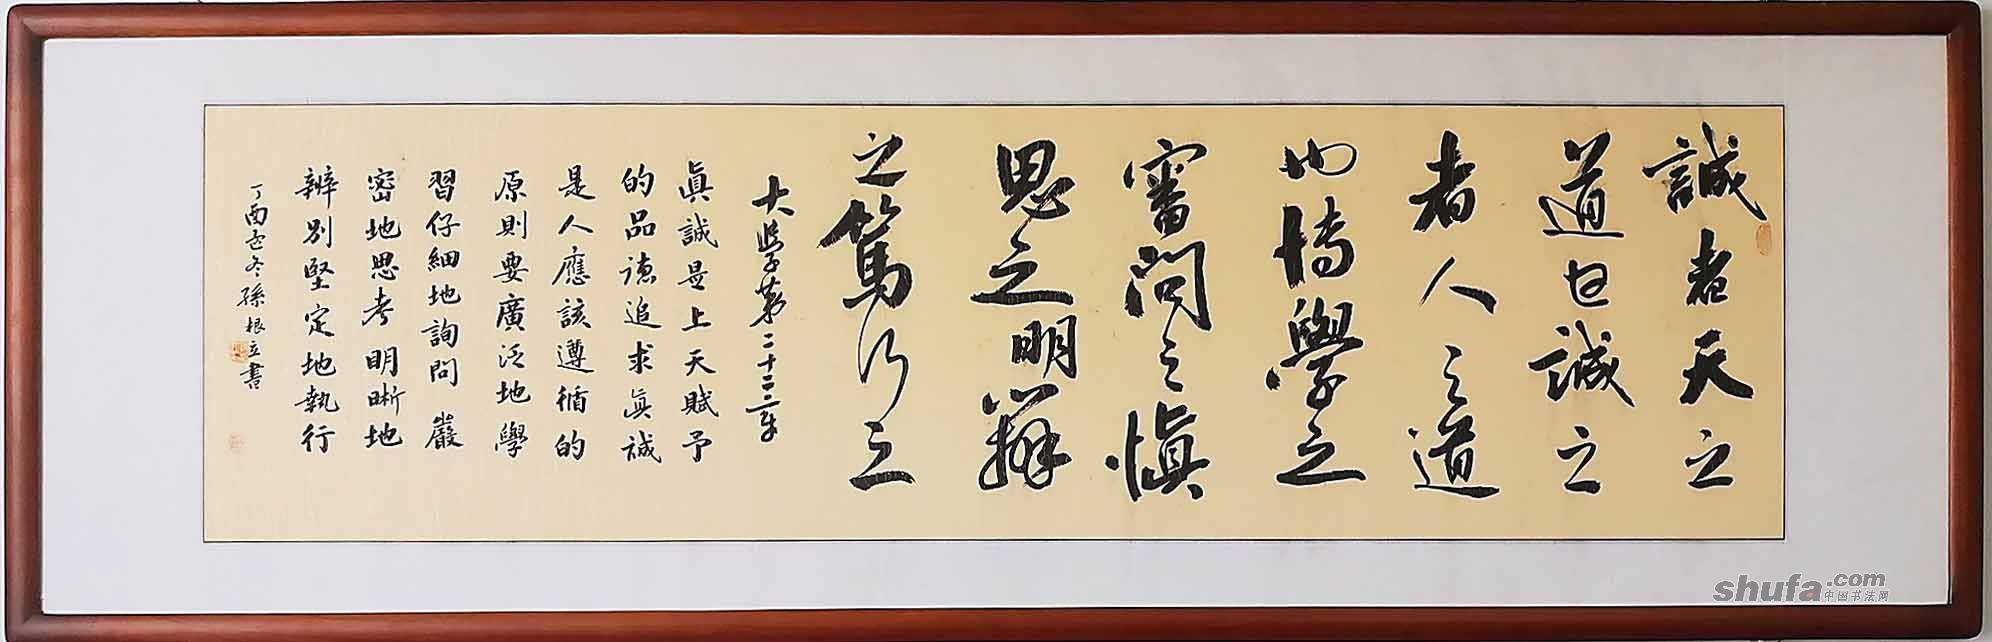 誠者天之
道也誠之
者人之道
也博學之
審問之慎
思之明辨
之篤行之
大學第二十二章
真誠是上天賦予
的品德追求真誠
是人應該遵循的
原則要廣泛地學
習仔細地詢問嚴
密地思考明晰地
辨別堅定地執行
丁酉孟冬孫根立書
shufa.com
中国书法网